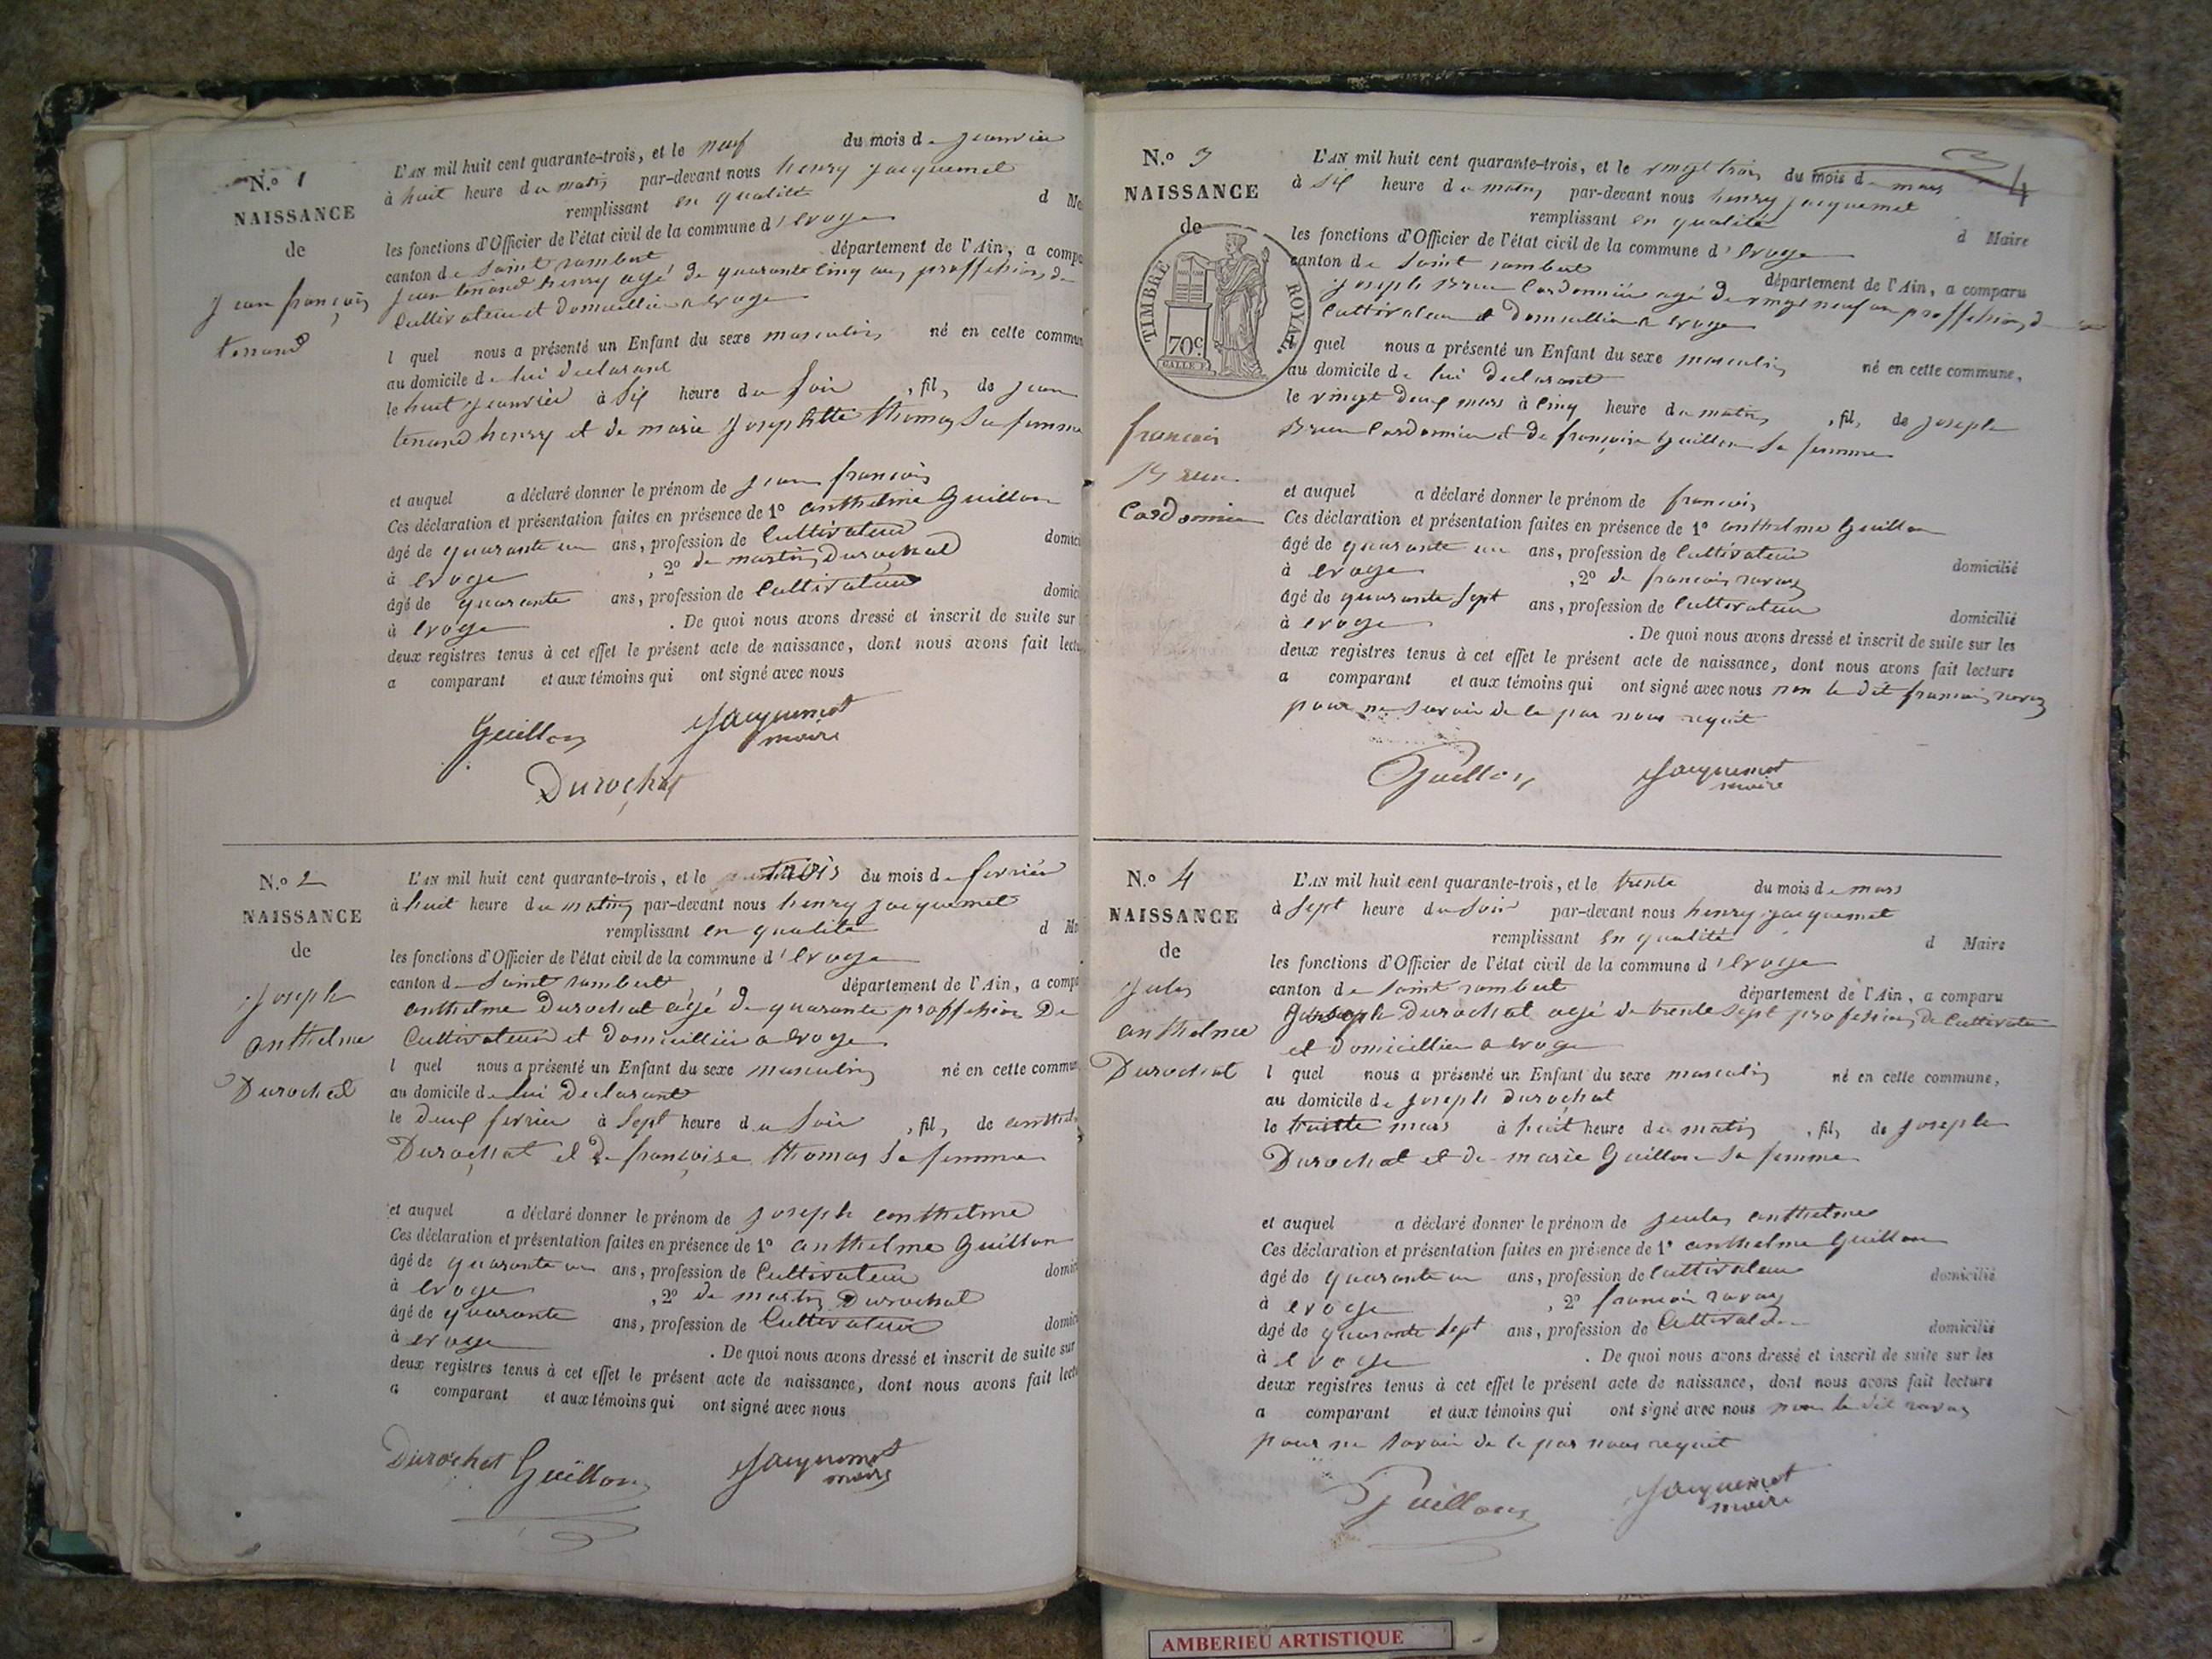 N.º 1
NAISSANCE
de
jean françois
tenand
L'AN mil huit cent quarante-trois, et le neuf du mois de janvier
à huit heure du matin par-devant nous henry jacquemet
remplissant en qualité d Ma
les fonctions d'Officier de l'état civil de la commune d'evoge
canton de saint rambert département de l'Ain, a compa
jean tenand henry agé de quarante cinq ans proffession de
Cultivateur et domicillier a evoge
l quel nous a présenté un Enfant du sexe masculin né en cette commun
au domicile de lui declarant
le huit janvier à Six heure du Soir , fils de jean
tenand henry et de marie josephtte thomas Sa femme
et auquel a déclaré donner le prénom de jean françois
Ces déclaration et présentation faites en présence de 1º anthelme Guillon
âgé de quarante un ans, profession de Cultivateur domici
à evoge , 2º de martin Durochat
âgé de quarante ans, profession de Cultivateur domici
à evoge . De quoi nous avons dressé et inscrit de suite sur
deux registres tenus à cet effet le présent acte de naissance, dont nous avons fait lectu
a comparant et aux témoins qui ont signé avec nous
Guillon Jacquemet
maire
Durochat
N.º 2
NAISSANCE
de
joseph
anthelme
Durochat
L'AN mil huit cent quarante-trois, et le trois du mois de fevrier
à huit heure du matin par-devant nous henry jacquemet
remplissant en qualité d Ma
les fonctions d'Officier de l'état civil de la commune d'evoge
canton de Saint rambert département de l'Ain, a compa
anthelme Durochat agé de quarante proffession De
Cultivateur et domicillier a evoge
l quel nous a présenté un Enfant du sexe masculin né en cette commun
au domicile de lui Declarant
le Deux fevrier à Sept heure du Soir , fils de anthel
Durochat et De françoise thomas Sa femme
et auquel a déclaré donner le prénom de joseph anthelme
Ces déclaration et présentation faites en présence de 1º anthelme Guillon
âgé de quarante un ans, profession de Cultivateur domici
à evoge , 2º de martin Durochat
âgé de quarante ans, profession de Cultivateur domici
à evoge . De quoi nous avons dressé et inscrit de suite sur
deux registres tenus à cet effet le présent acte de naissance, dont nous avons fait lectu
a comparant et aux témoins qui ont signé avec nous
Durochat Guillon Jacquemet
maire
3
4
N.º 3
NAISSANCE
de
TIMBRE ROYAL.
70c
francois
Brun
Cordonnier
L'AN mil huit cent quarante-trois, et le vingt trois du mois de mars
à Six heure du matin par-devant nous henry jacquemet
remplissant en qualité d Maire
les fonctions d'Officier de l'état civil de la commune d'evoge
canton de Saint rambert département de l'Ain, a comparu
joseph Brun Cordonnier agé de vingt neuf an proffession d
Cultivateur et Domicillier a evoge
l quel nous a présenté un Enfant du sexe masculin né en cette commune,
au domicile de lui declarant
le vingt deux mars à Cinq heure du matin , fils de joseph
Brun Cordonnier et de françoise Guillon Sa femme
et auquel a déclaré donner le prénom de francois
Ces déclaration et présentation faites en présence de 1º anthelme Guillon
âgé de quarante un ans, profession de Cultivateur domicilié
à evoge , 2º de francois ravaz
âgé de quarante sept ans, profession de Cultivateur domicilié
à evoge . De quoi nous avons dressé et inscrit de suite sur les
deux registres tenus à cet effet le présent acte de naissance, dont nous avons fait lecture
a comparant et aux témoins qui ont signé avec nous non le dit francois ravaz
pour ne savoir de le par nous requit
Guillon Jacquemet
maire
N.º 4
NAISSANCE
de
jules
anthelme
Durochat
L'AN mil huit cent quarante-trois, et le trente du mois de mars
à Sept heure du Soir par-devant nous henry jacquemet
remplissant en qualité d Maire
les fonctions d'Officier de l'état civil de la commune d'evoge
canton de Saint rambert département de l'Ain, a comparu
joseph Durochat agé de trente sept profession de Cultivate
et domicillier a evoge
l quel nous a présenté un Enfant du sexe masculin né en cette commune,
au domicile de joseph durochat
le trente mars à huit heure du matin , fils de joseph
Durochat et de marie Guillon Sa femme
et auquel a déclaré donner le prénom de jules anthelme
Ces déclaration et présentation faites en présence de 1º anthelme Guillon
âgé de quarante un ans, profession de Cultivateur domicilié
à evoge , 2º francois ravaz
âgé de quarante Sept ans, profession de Cultivateur domicilié
à evoge . De quoi nous avons dressé et inscrit de suite sur les
deux registres tenus à cet effet le présent acte de naissance, dont nous avons fait lecture
a comparant et aux témoins qui ont signé avec nous non le dit ravaz
pour ne savoir de le par nous requit
Guillon Jacquemet
maire
AMBERIEU ARTISTIQUE